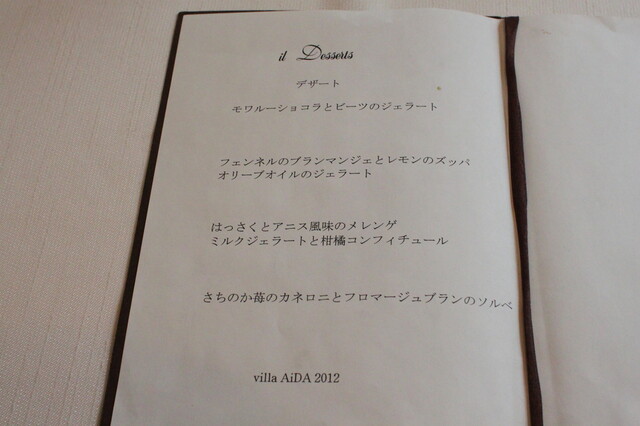 il Desserts
デザート
モワルーショコラとビーツのジェラート
フェンネルのブランマンジェとレモンのズッパ
オリーブオイルのジェラート
はっさくとアニス風味のメレンゲ
ミルクジェラートと柑橘コンフィチュール
さちのか苺のカネロニとフロマージュブランのソルベ
villa AiDA 2012